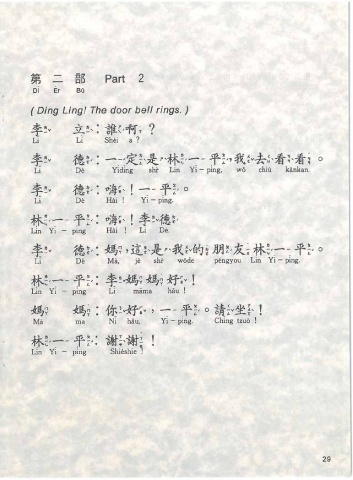 第二部 Part 2
Dì Èr Bù
( Ding Ling! The door bell rings. )
李立：誰啊？
Lǐ Lì Shéi a ?
李德：一定是林一平，我去看看。
Lǐ Dé Yídìng shì Lín Yī-píng, wǒ chiù kànkan.
李德：嗨！一平。
Lǐ Dé Hài ! Yī-píng.
林一平：嗨！李德
Lín Yī-píng Hài ! Lǐ Dé.
李德：媽，這是我的朋友林一平。
Lǐ Dé Mā, jè shì wǒde péngyou Lín Yī-píng.
林一平：李媽媽好！
Lín Yī-píng Lǐ māma hǎu !
媽媽：你好，一平。請坐！
Mā ma Nǐ hǎu, Yī-píng. Chǐng tzuò !
林一平：謝謝！
Lín Yī-píng Shièshie !
29